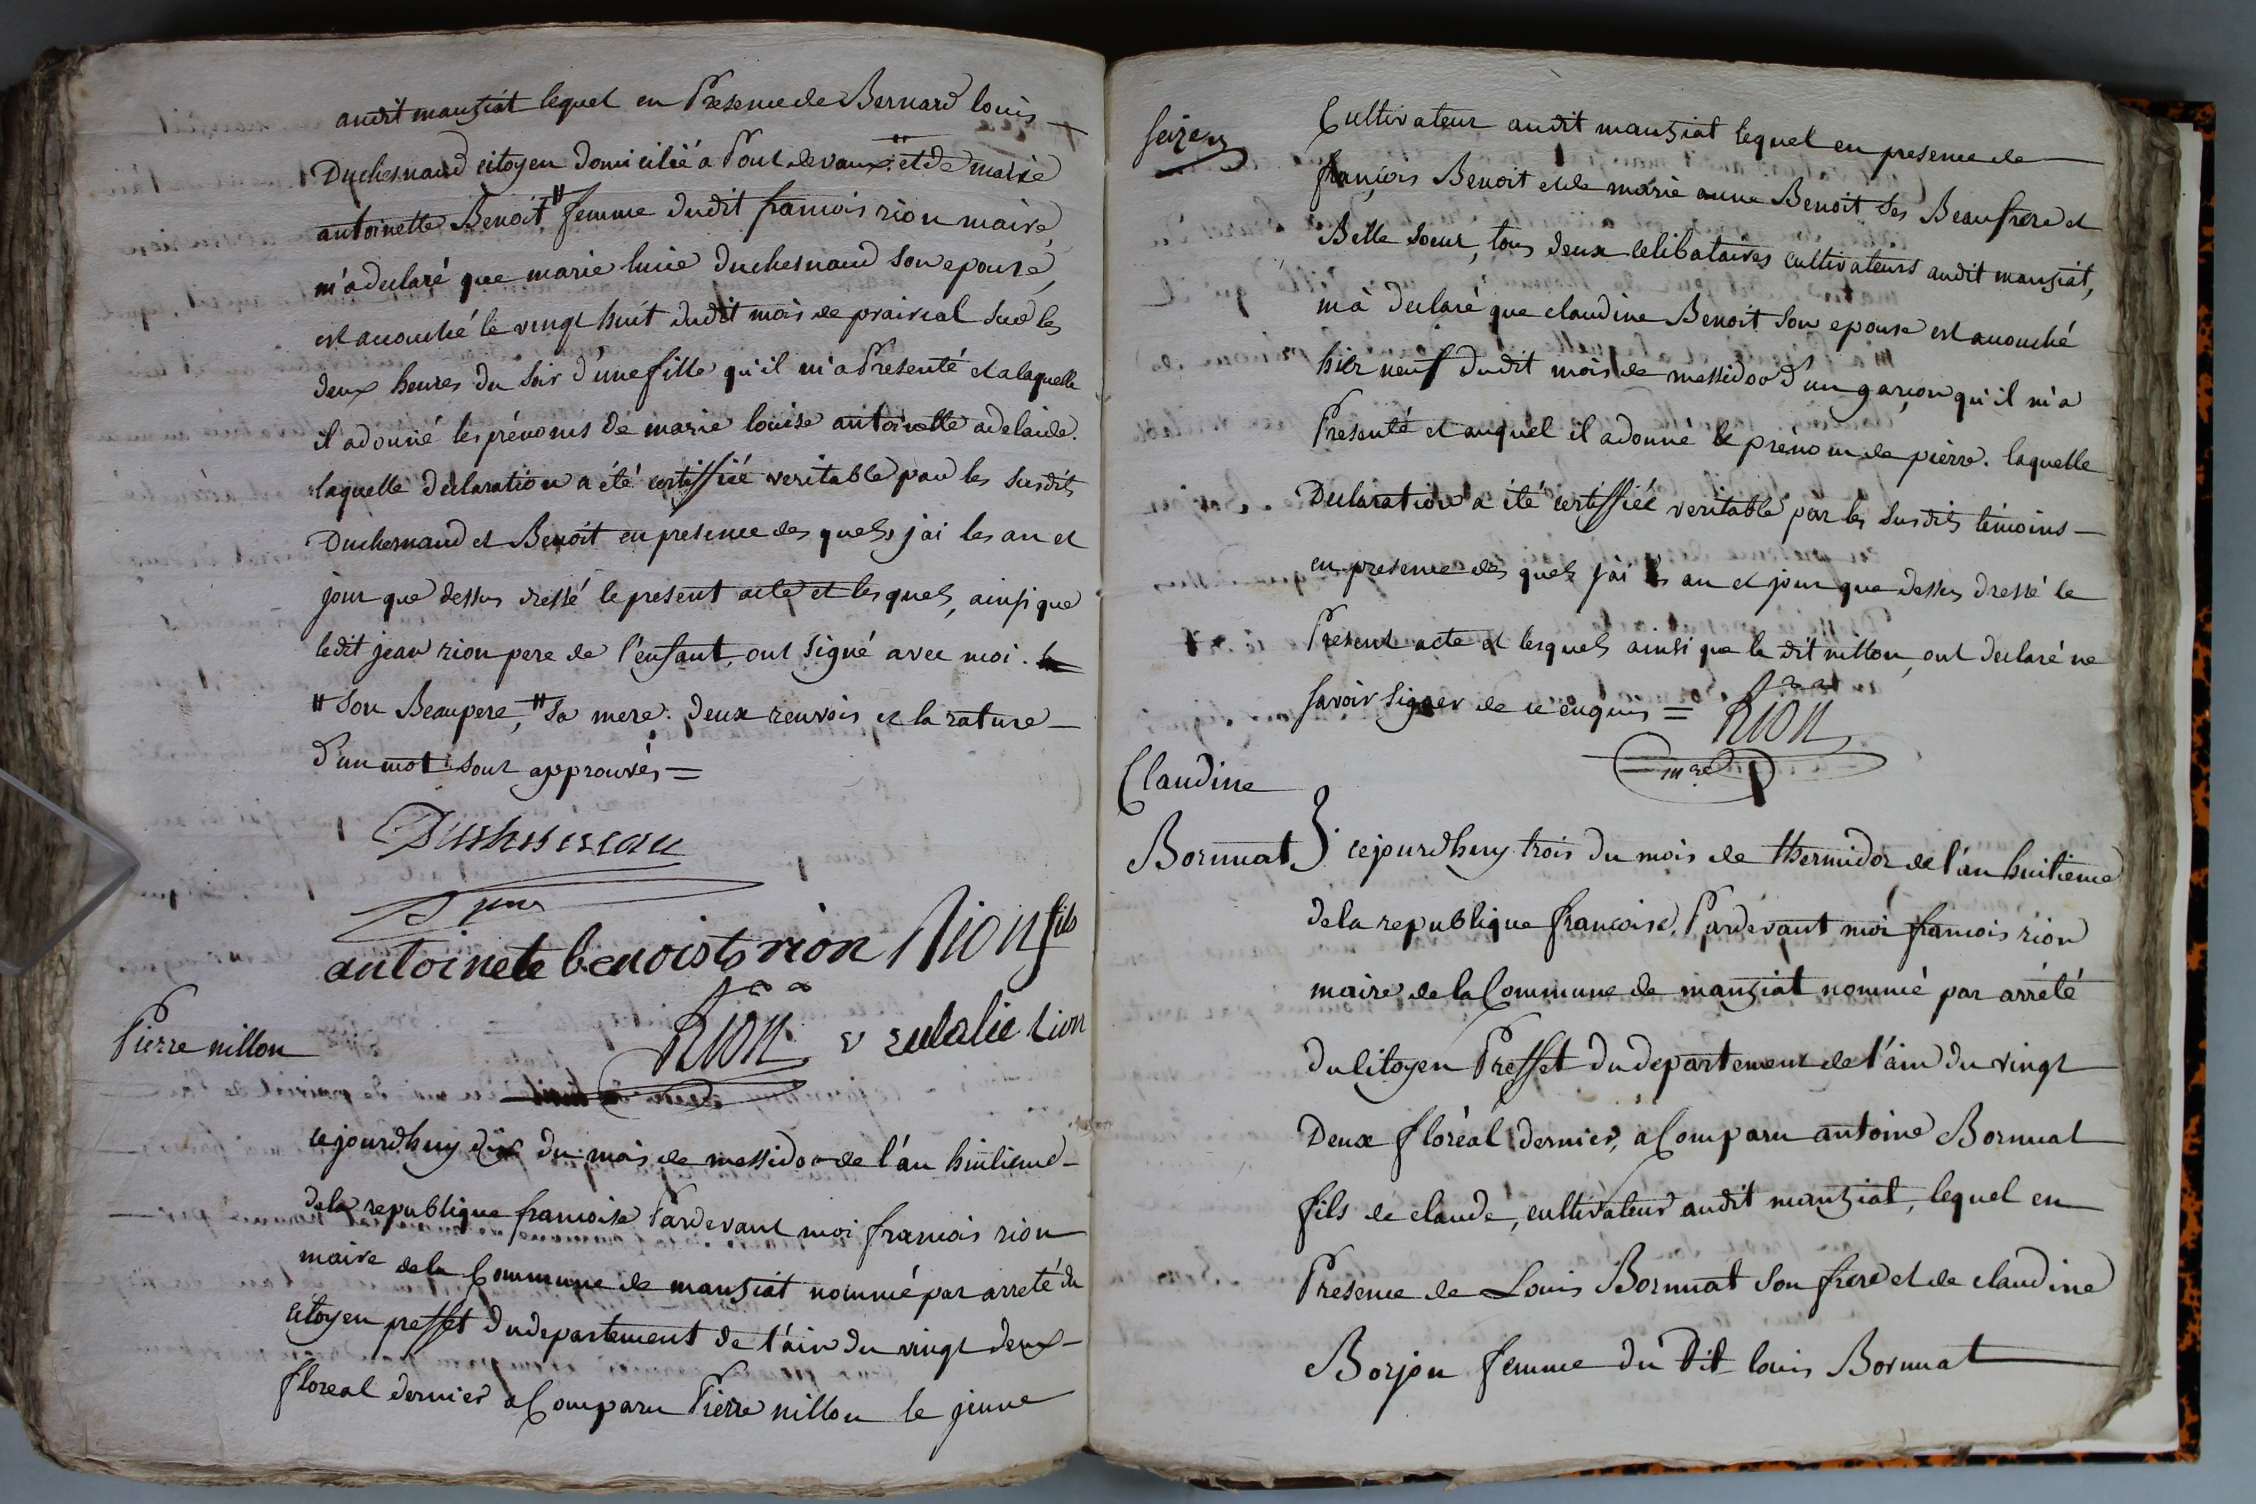 audit manziat lequel en Presence de Bernard louis
Duchesnaud citoyen domicilié a Pont devaux # et de marie
antoinette Benoit # femme dudit francois rion maire,
m'a declaré que marie lucie duchesnaud son epouse,
est accouché le vingt huit dudit mois de prairial sur les
deux heures du soir d'une fille qu'il m'a Presenté et a laquelle
il a donné les prénoms de marie louise antoinette adelaide.
laquelle declaration a été certiffiée veritable par les susdits
Duchesnaud et Benoit en presence des quels j'ai les an et
jour que dessus dressé le present acte et lesquels, ainsi que
ledit jean rion pere de l'enfant, ont signé avec moi.
# son Beaupere, # sa mere. deux renvois et la rature
d'un mot sont approuvés =
antoinete benoist rion Rion fils
Rion eulalie rion
Pierre nillon
cejourdhuy dix du mois de messidor de l'an huitieme
dela republique francoise Pardevant moi francois rion
maire dela Commune de manziat nommé par arreté du
citoyen preffet du departement de l'ain du vingt deux
floreal dernier a Comparu Pierre nillon le jeune
seize
Cultivateur audit manziat lequel en presence de
françois Benoit et de marie anne Benoit ses Beaufrere et
Belle soeur, tous deux celibataires cultivateurs audit manziat,
m'a declaré que claudine Benoit son epouse est accouché
hier neuf dudit mois de messidor d'un garçon qu'il m'a
Presenté et auquel il a donné le prenom de pierre. laquelle
Declaration a été certiffiée veritable par les susdits témoins
en presence des quels j'ai les an et jour que dessus dressé le
Present acte et lesquels ainsi que le dit nillon, ont declaré ne
savoir signer de ce enquis = Rion
mre
Claudine
Bornuat } cejourdhuy trois du mois de thermidor de l'an huitieme
dela republique francoise, Pardevant moi francois rion
maire de la Commune de manziat nommé par arrété
du Citoyen Preffet du departement de l'ain du vingt
Deux floréal dernier, a Comparu antoine Bornuat
fils de claude, cultivateur audit manziat, lequel en
Presence de Louis Bornuat son frere et de claudine
Borjon femme du dit louis Bornuat